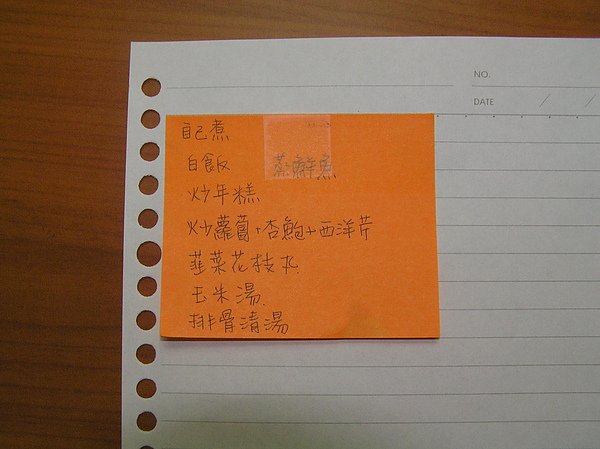 NO.
DATE / /
自己煮
白飯 蒸鮮魚
炒年糕
炒蘿蔔+杏鮑+西洋芹
韮菜花枝丸
玉米湯
排骨清湯